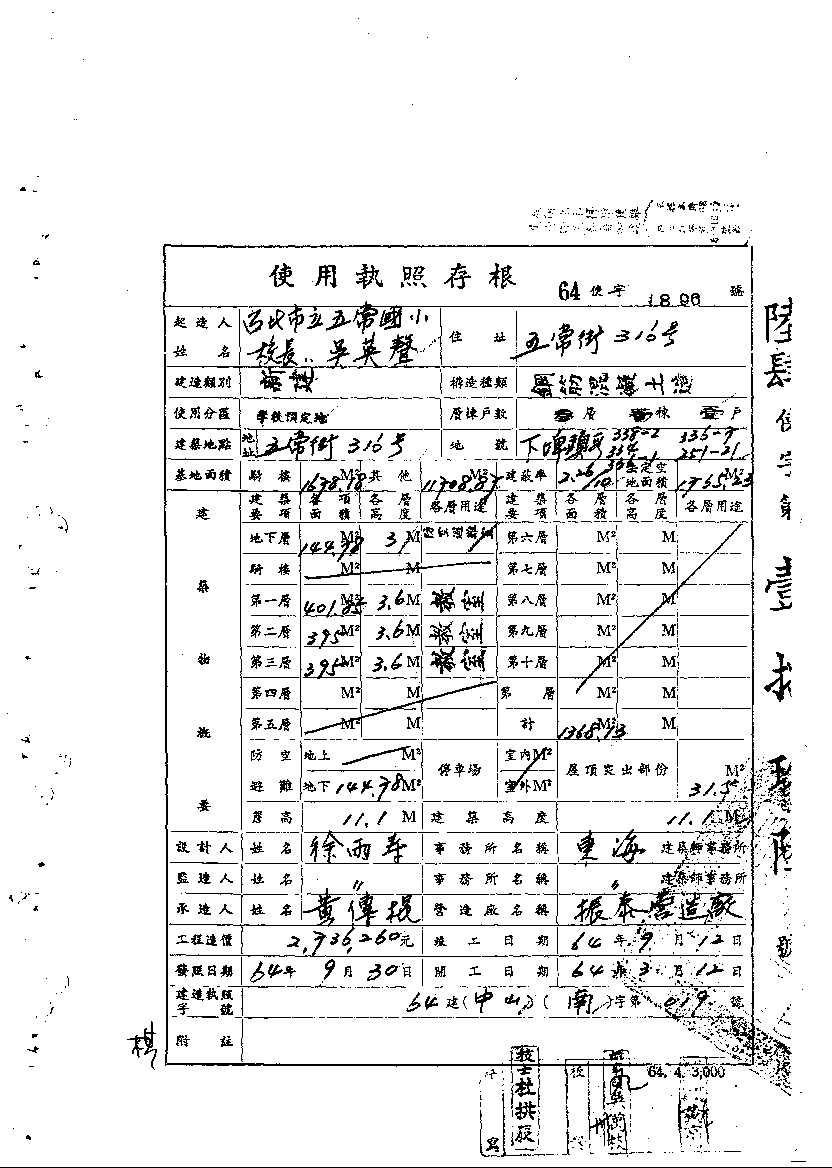 使用執照存根 64使字1896號
起造人姓名 台北市立五常國小校長：吳英聲 住址 五常街316号
建造類別 構造種類 鋼筋混凝土造
使用分區 學校預定地 層棟戶數 層 棟 戶
建築地點 地址 五常街316号 地號 下埤頭 338-2 336-7
334 336-1 251-21
基地面積 騎樓 1678.18M² 其他 11708.87M² 建蔽率 2.26/10 法定空地面積 1755.23M²
建築物概要
建築要項 各項面積 各層高度 各層用途 建築要項 各層面積 各層高度 各層用途
地下層 144.78M² 3M 第六層 M² M
騎樓 M² M 第七層 M² M
第一層 401.85M² 3.6M 教室 第八層 M² M
第二層 395M² 3.6M 教室 第九層 M² M
第三層 395M² 3.6M 教室 第十層 M² M
第四層 M² M 第 層 M² M
第五層 M² M 計 1368.13M² M
防空避難 地上 M² 停車場 室內M² 屋頂突出部份 M²
地下 144.78M² 室外M² 31.5
簷高 11.1M 建築高度 11.1M
設計人 姓名 徐雨寿 事務所名稱 東海 建築師事務所
監造人 姓名 〃 事務所名稱 〃 建築師事務所
承造人 姓名 黃傳棍 營造廠名稱 振泰營造廠
工程造價 2,736,260元 竣工日期 64年9月12日
發照日期 64年9月30日 開工日期 64年3月12日
建造執照字號 64建(中山)(南)字第019號
附註
棋
技士杜拱辰
64.4.3,000
陸肆使字第壹
號